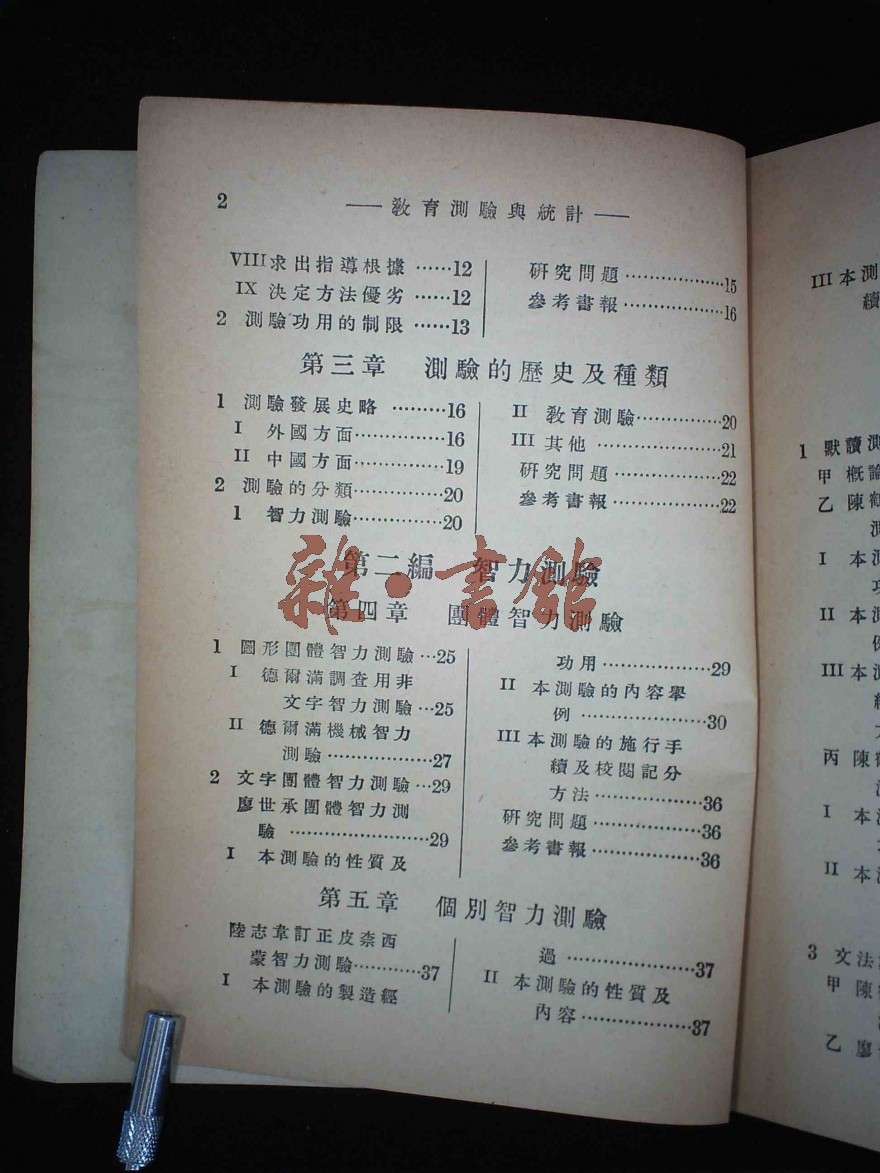 2
——教育測驗與統計——
VIII求出指導根據……12
IX 決定方法優劣……12
2 測驗功用的制限……13
研究問題………………15
參考書報………………16
第三章 測驗的歷史及種類
1 測驗發展史略………16
I 外國方面……………16
II 中國方面……………19
2 測驗的分類……………20
1 智力測驗……………20
II 教育測驗……………20
III 其他…………………21
研究問題………………22
參考書報………………22
第二編 智力測驗
第四章 團體智力測驗
1 圖形團體智力測驗…25
I 德爾滿調查用非
文字智力測驗…25
II 德爾滿機械智力
測驗………………27
2 文字團體智力測驗…29
廖世承團體智力測
驗…………………29
I 本測驗的性質及
功用…………………29
II 本測驗的內容舉
例…………………30
III 本測驗的施行手
續及校閱記分
方法………………36
研究問題………………36
參考書報………………36
第五章 個別智力測驗
陸志韋訂正皮奈西
蒙智力測驗…………37
I 本測驗的製造經
過…………………37
II 本測驗的性質及
內容………………37
III 本測
續
1 默讀測
甲 概論
乙 陳鶴
測
I 本測
功
II 本測
例
III 本測
續
方
丙 陳鶴
測
I 本測
功
II 本
3 文法
甲 陳
乙 廖
雜·書館